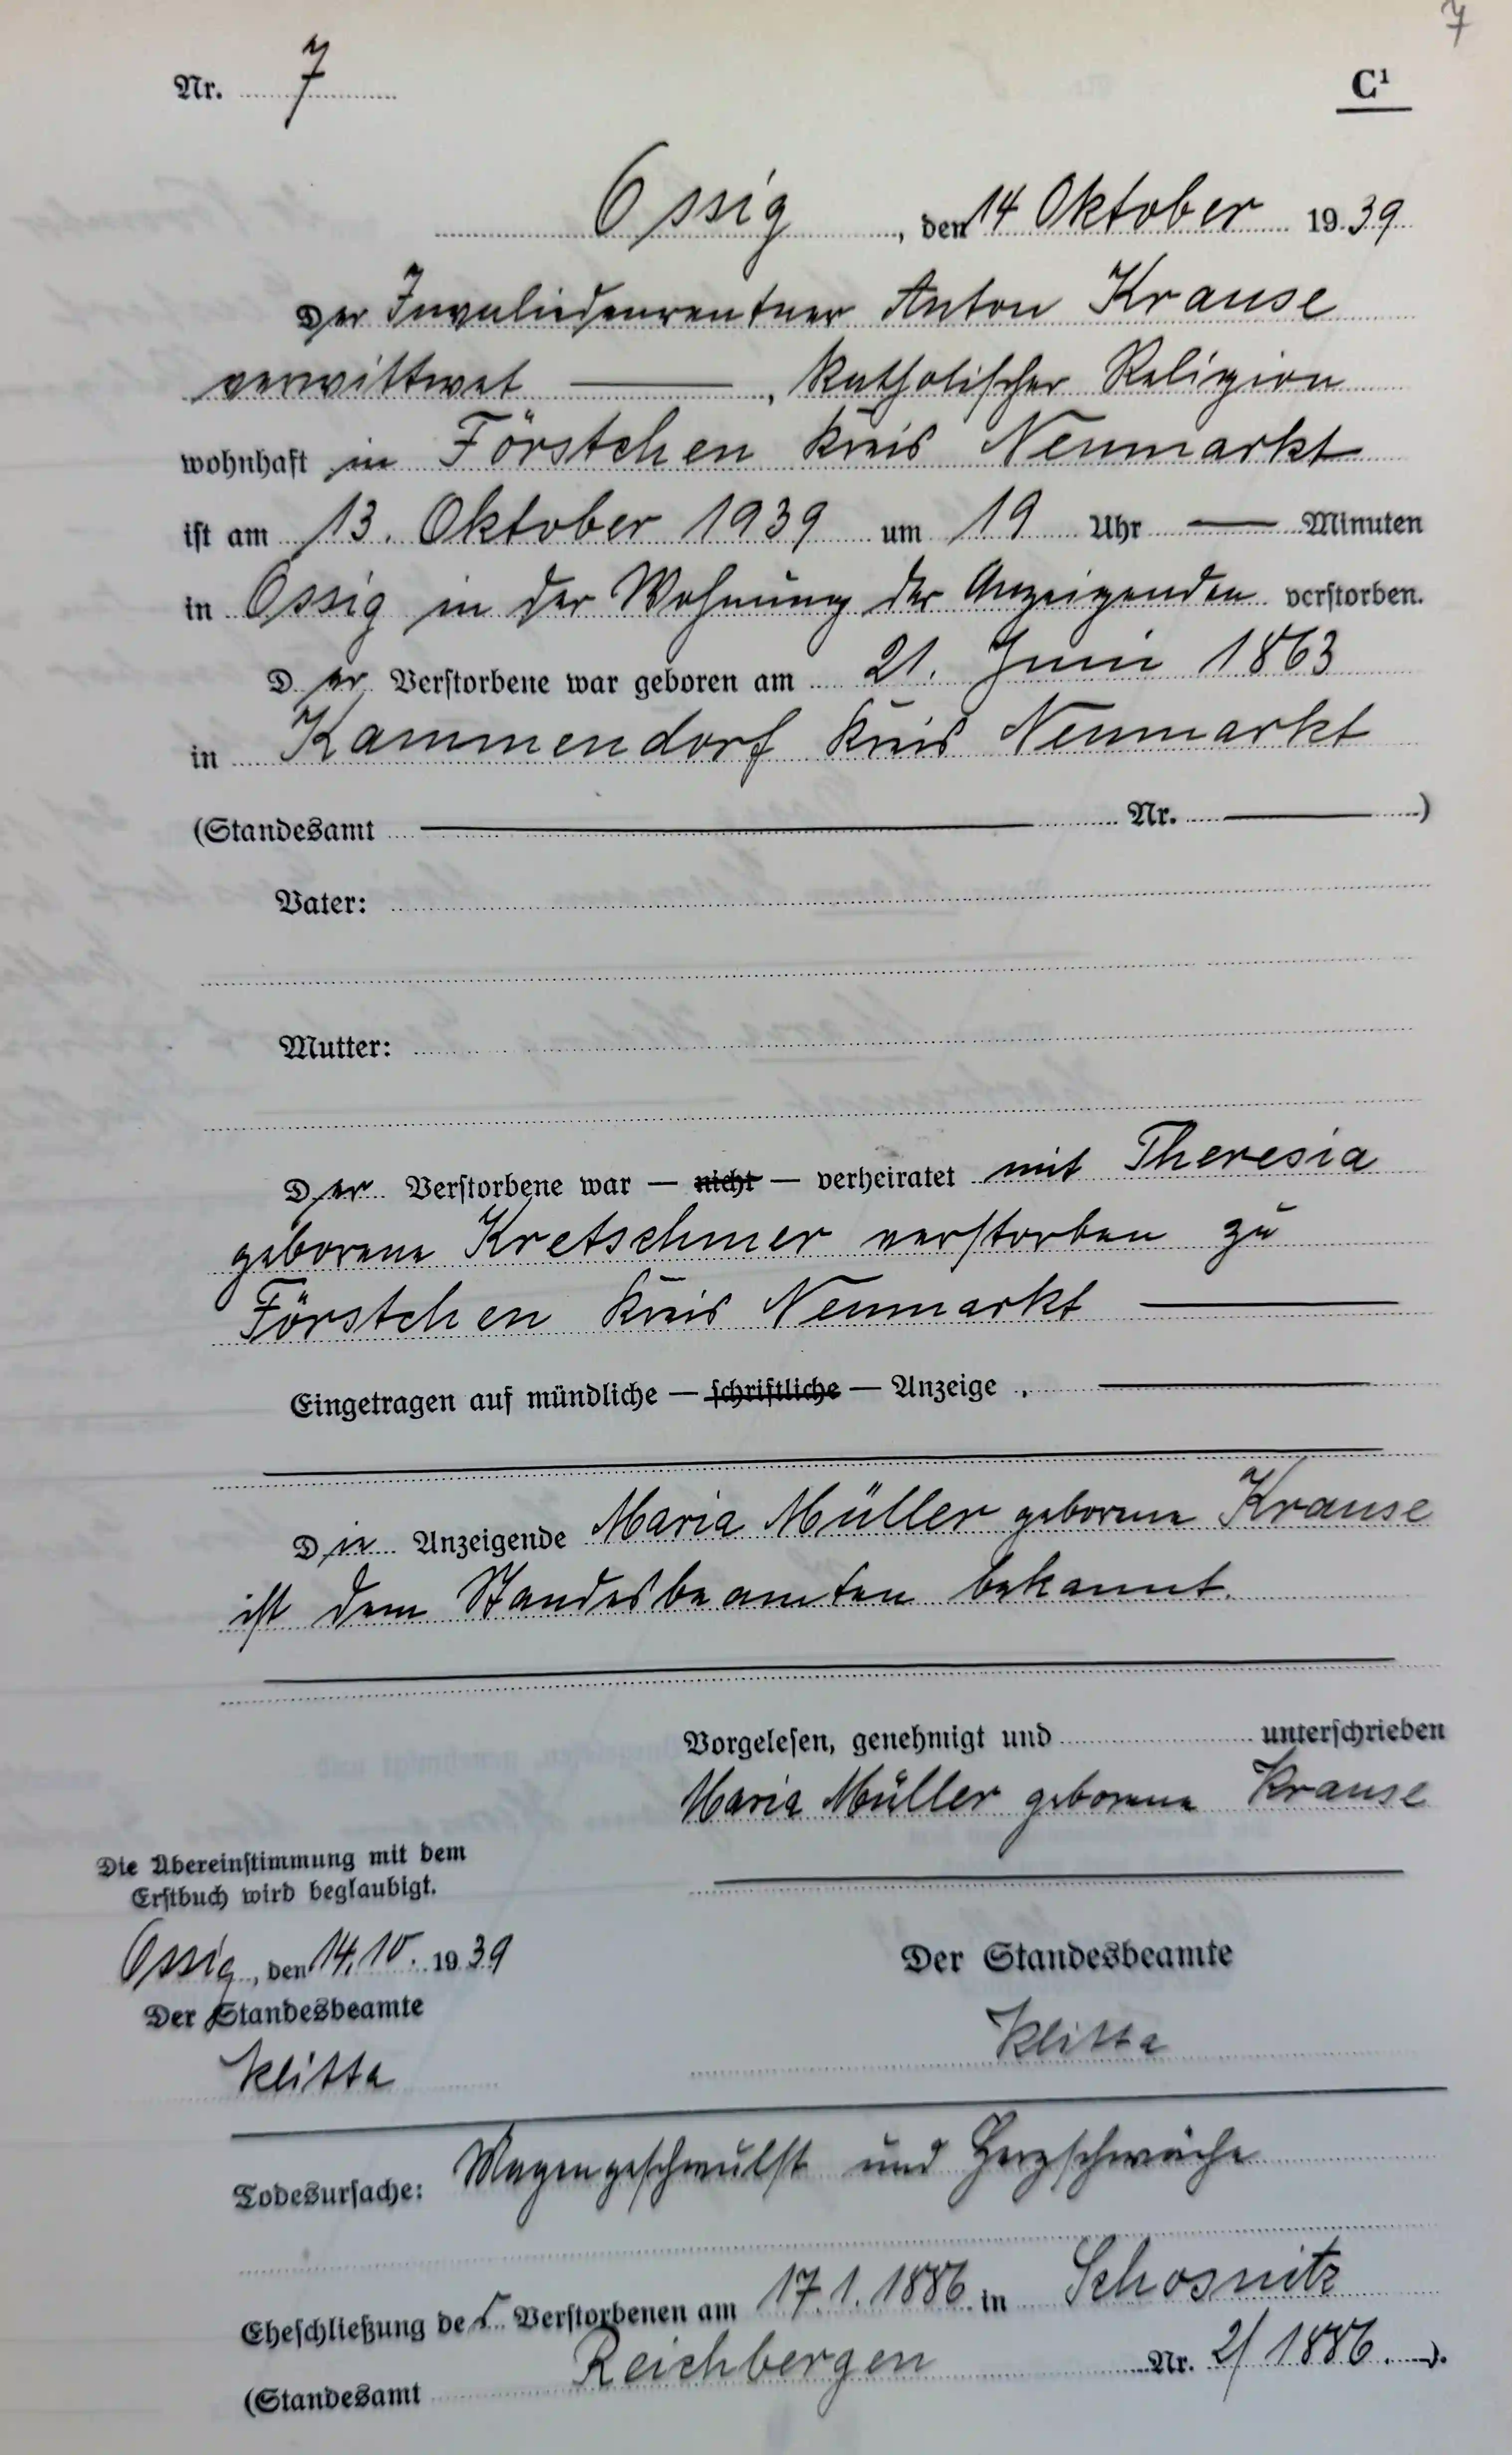 7
Nr. 7
C¹
Ossig, den 14 Oktober 1939
Der Invaliedenrentner Anton Krause
verwittwet ———, katholischer Religion
wohnhaft in Förstchen Kreis Neumarkt
ist am 13. Oktober 1939 um 19 Uhr —— Minuten
in Ossig in der Wohnung der Anzeigenden verstorben.
Der Verstorbene war geboren am 21. Juni 1863
in Kammendorf Kreis Neumarkt
(Standesamt ——— Nr. ———)
Vater:
Mutter:
Der Verstorbene war — nicht — verheiratet mit Theresia
geborene Kretschmer verstorben zu
Förstchen Kreis Neumarkt ———
Eingetragen auf mündliche — schriftliche — Anzeige . ———
Die Anzeigende Maria Müller geborene Krause
ist dem Standesbeamten bekannt.
Vorgelesen, genehmigt und unterschrieben
Maria Müller geborene Krause
Die Übereinstimmung mit dem
Erstbuch wird beglaubigt.
Ossig, den 14.10. 1939
Der Standesbeamte
Klitta
Der Standesbeamte
Klitta
Todesursache: Magengeschwulst und Herzschwäche
Eheschließung des Verstorbenen am 17.1.1886 in Schosnitz
(Standesamt Reichbergen Nr. 2/1886.).